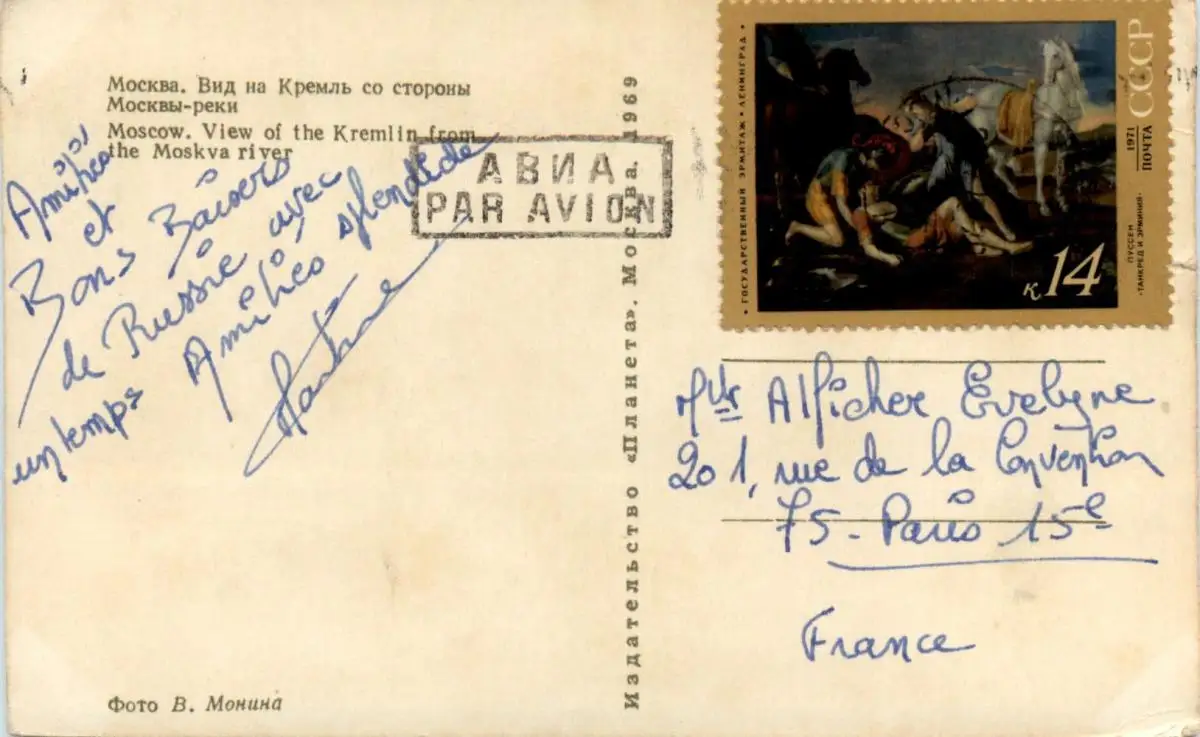 Москва. Вид на Кремль со стороны
Москвы-реки
Moscow. View of the Kremlin from
the Moskva river
АВИА
PAR AVION
et
Bons Baisers
de Russie avec
un temps splendide
Фото В. Монина
Издательство «Планета». Москва. 1969
• ГОСУДАРСТВЕННЫЙ ЭРМИТАЖ • ЛЕНИНГРАД •
к 14
ПУССЕН
«ТАНКРЕД И ЭРМИНИЯ»
1971
ПОЧТА
СССР
Alficher Evelyne
201, rue de la Convention
75 - Paris 15e
France